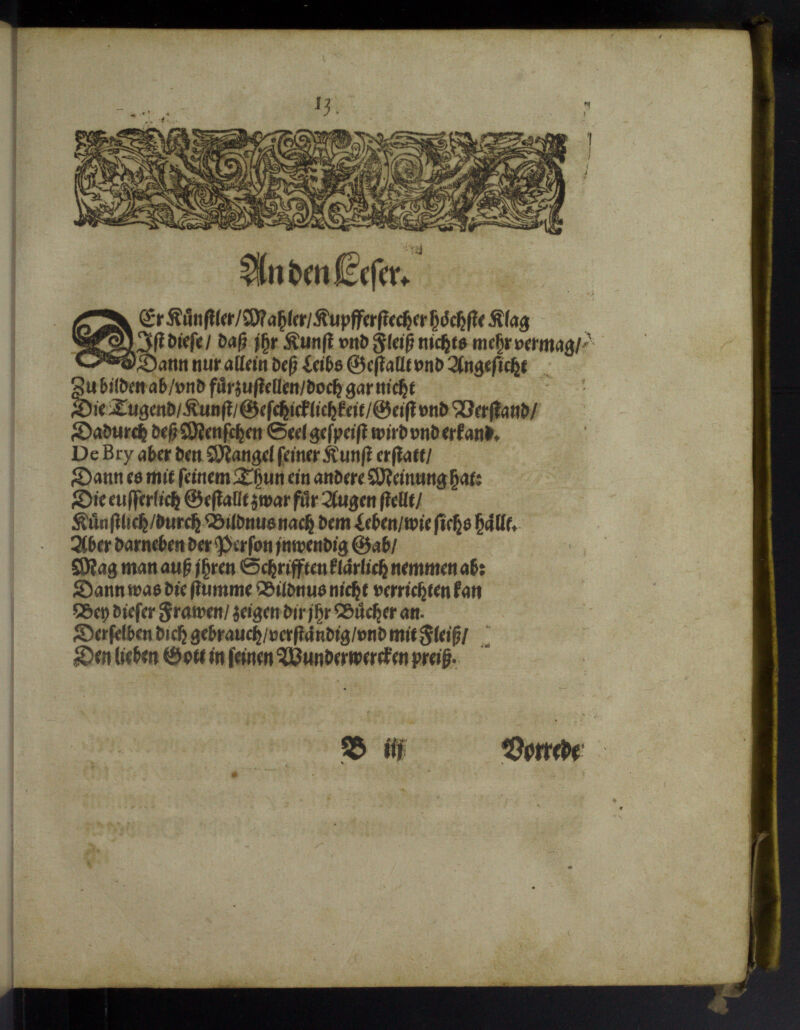 13.
An den Leser.
DEr Künstler/Mahler/Kupfferstecher höchste Klag
Ist diese/ daß jhr Kunst vnd Fleiß nichts mehr vermag/
Dann nur allein deß Leibs Gestallt vnd Angesicht
Zu bilden ab/vnd fürzustellen/doch gar nicht
Die Tugend/Kunst/Geschicklichkeit/Geist vnd Verstand/
Dadurch deß Menschen Seel gespeist wird vnd erkand.
De Bry aber den Mangel seiner Kunst erstatt/
Dann es mit seinem Thun ein andere Meinung hat:
Die eusserlich Gestallt zwar für Augen stellt/
Künstlich/durch Bildnus nach dem Leben/wie sichs hällt.
Aber darneben der Person jnwendig Gab/
Mag man auß jhren Schrifften klärlich nemmen ab:
Dann was die stumme Bildnus nicht verrichten kan
Bey dieser Frawen/ zeigen dir jhr Bücher an.
Derselben dich gebrauch/verständig/vnd mit Fleiß/
Den lieben Gott in seinen Wunderwercken preiß.
B iij Vorrede